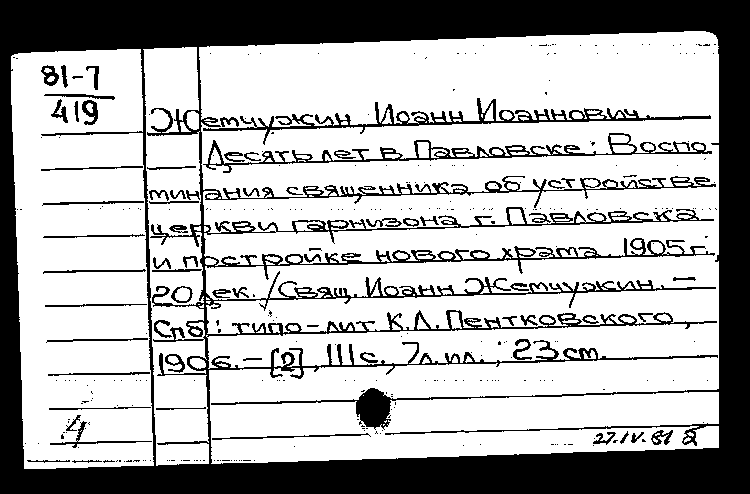 81-7
419
Жемчужин, Иоанн Иоаннович.
Десять лет в Павловске: Воспо-
минания священника об устройстве
церкви гарнизона г. Павловска
и постройке нового храма. 1905 г.,
20 дек. / Свящ. Иоанн Жемчужин. –
Спб: типо-лит. К.Л. Пентковского,
1906. – [2], 111 с., 7 л. ил.; 23 см.
4
27.IV.81